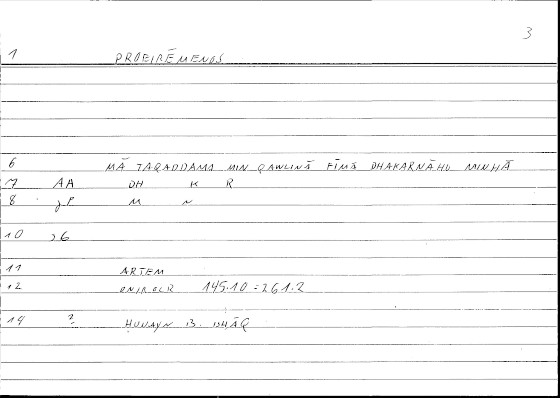 3
1 PROEIRĒMENOS
6 MĀ TAQADDAMA MIN QAWLINĀ FĪMĀ DHAKARNĀHU MINHĀ
7 AA DH K R
8 M N
10 6
11 ARTEM
12 ONIROCR 145.10 = 261.2
14 ? HUNAYN B. ISHĀQ